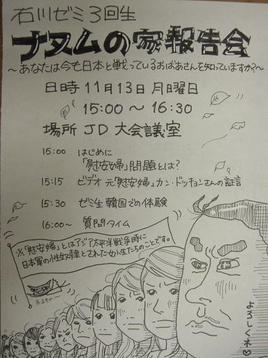 石川ゼミ3回生
ナヌムの家報告会
～あなたは今も日本と戦っているおばあさんを知っていますか？～
日時 11月13日 月曜日
15:00 ～ 16:30
場所 JD 大会議室
15:00 はじめに
「慰安婦」問題とは？
15:15 ビデオ 元「慰安婦」カン・ドッキョンさんの証言
15:30 ゼミ 韓国での体験
16:00～ 質問タイム
※「慰安婦」とはアジア太平洋戦争時に
日本軍の性奴隷とされた女性たちのことです。
よろしくネ♡